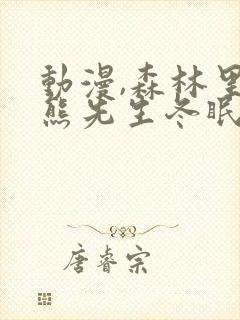 動漫,森林里
熊先生冬眠
唐睿宗